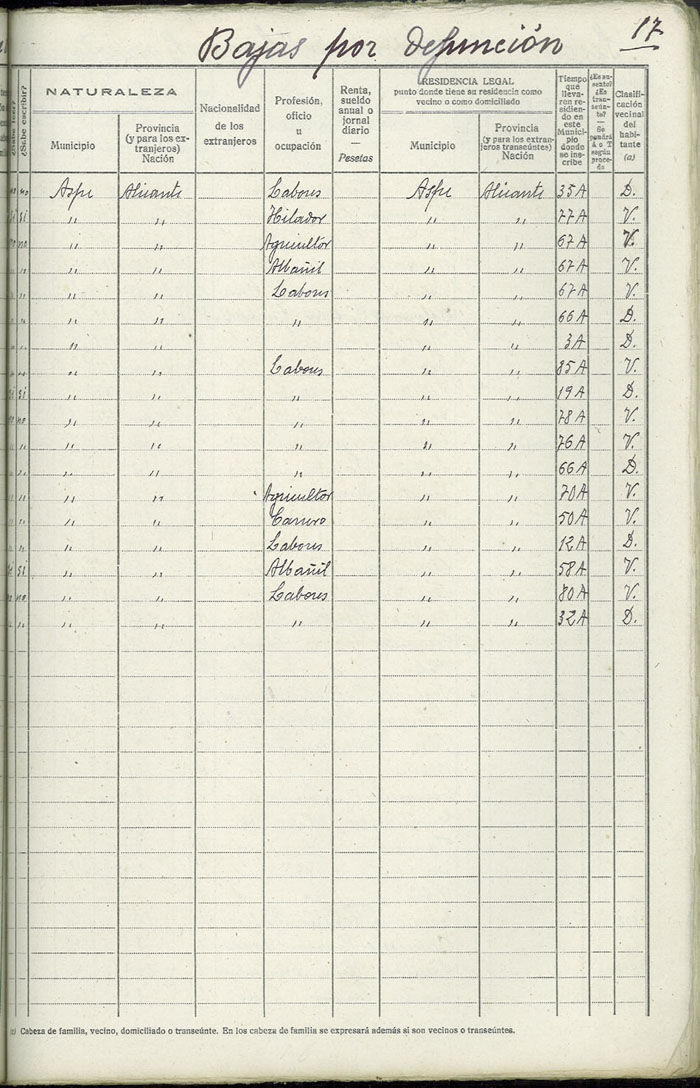 Bajas por defunción
17
¿Sabe escribir?
NATURALEZA
Municipio
Provincia
(y para los ex-
tranjeros)
Nación
Nacionalidad
de los
extranjeros
Profesión,
oficio
u
ocupación
Renta,
sueldo
anual o
jornal
diario
—
Pesetas
RESIDENCIA LEGAL
punto donde tiene su residencia como
vecino o como domiciliado
Municipio
Provincia
(y para los extran-
jeros transeúntes)
Nación
Tiempo
que
lleva-
ren re-
sidien-
do en
este
Munici-
pio
donde
se ins-
cribe
¿Es au-
sente?
¿Es
tran-
seún-
te?
—
Se
pondrá
A o T
según
proce-
da
Clasifi-
cación
vecinal
del
habi-
tante
(a)
no no Aspe Alicante Labores Aspe Alicante 35 A D.
si si „ „ Hilador „ „ 77 A V.
no no „ „ Agricultor „ „ 67 A V.
„ „ „ „ Albañil „ „ 67 A V.
„ „ „ „ Labores „ „ 67 A V.
„ „ „ „ „ „ „ 66 A D.
„ „ „ „ „ „ 3 A D.
„ „ „ „ Labores „ „ 85 A V.
si si „ „ „ „ „ 19 A D.
no no „ „ „ „ „ 78 A V.
„ „ „ „ „ „ „ 76 A V.
„ „ „ „ „ „ „ 66 A D.
„ „ „ „ Agricultor „ „ 70 A V.
„ „ „ „ Carrero „ „ 50 A V.
„ „ „ „ Labores „ „ 12 A D.
si si „ „ Albañil „ „ 58 A V.
no no „ „ Labores „ „ 80 A V.
„ „ „ „ „ „ „ 32 A D.
(a) Cabeza de familia, vecino, domiciliado o transeúnte. En los cabeza de familia se expresará además si son vecinos o transeúntes.